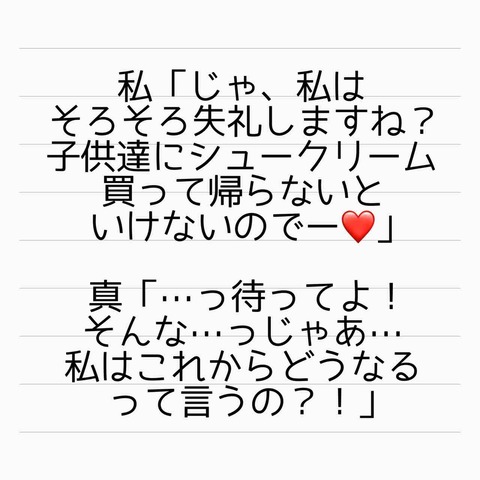 私「じゃ、私は
そろそろ失礼しますね？
子供達にシュークリーム
買って帰らないと
いけないのでー❤️」
真「…っ待ってよ！
そんな…っじゃあ…
私はこれからどうなる
って言うの？！」